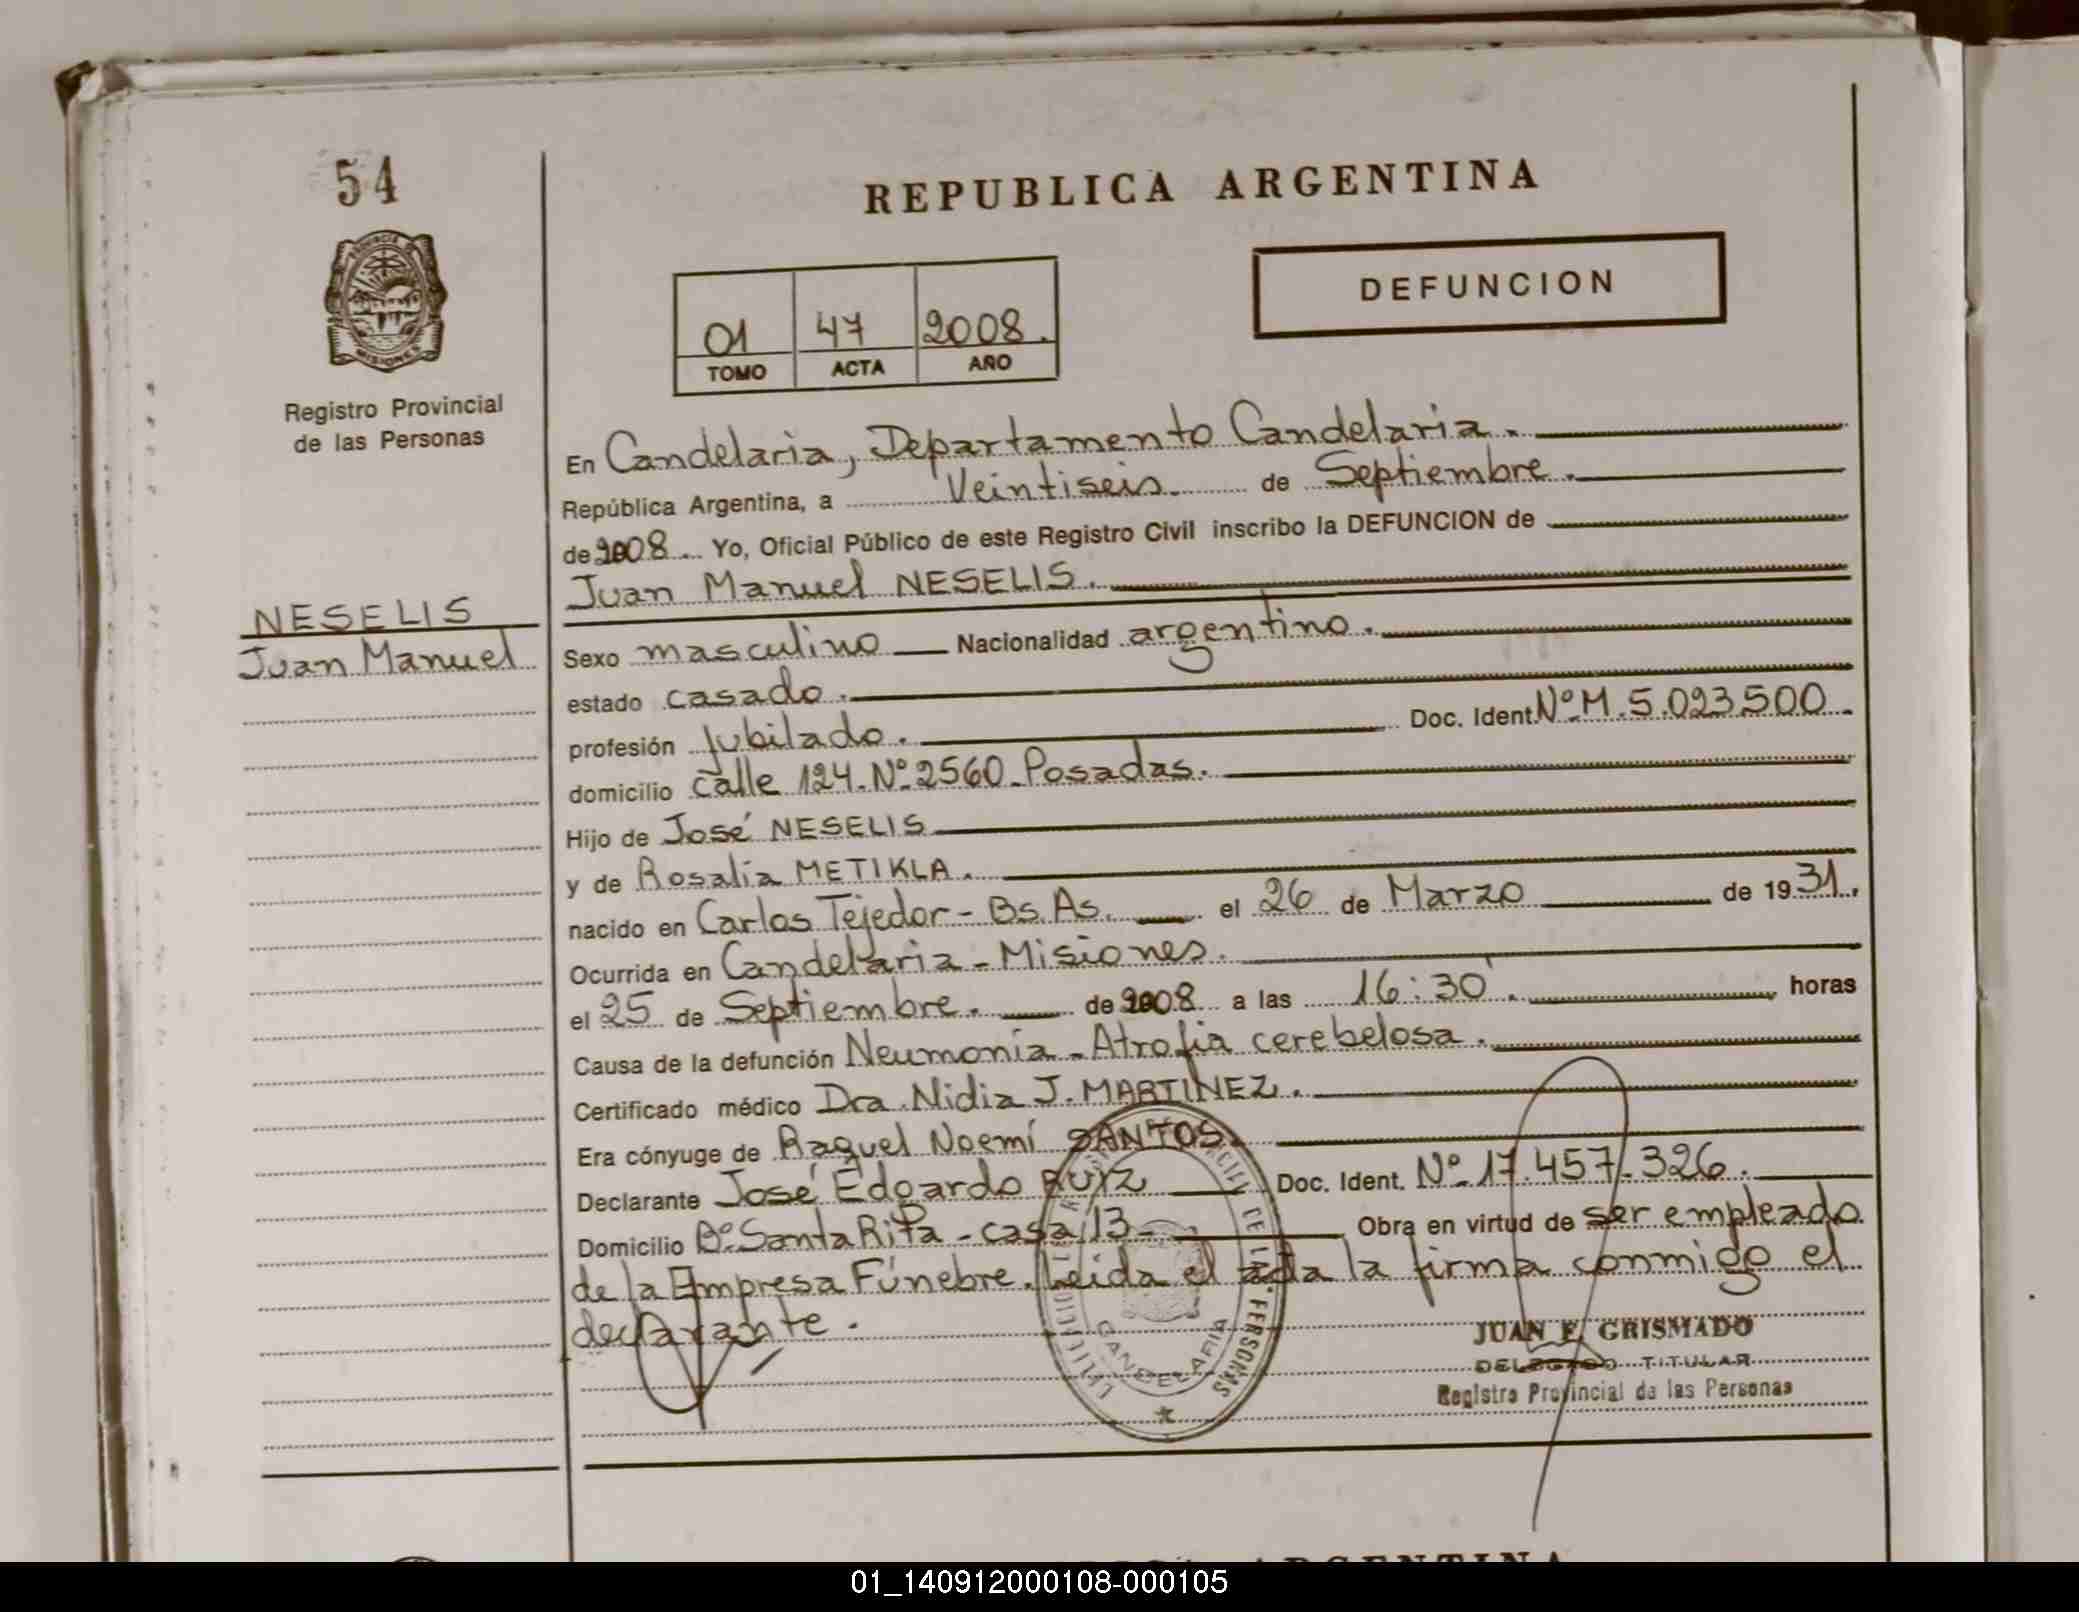 54
REPUBLICA ARGENTINA
DEFUNCION
01 47 2008.
TOMO ACTA AÑO
MISIONES
Registro Provincial
de las Personas
NESELIS
Juan Manuel
En Candelaria, Departamento Candelaria.
República Argentina, a Veintiseis de Septiembre.
de 2008. Yo, Oficial Público de este Registro Civil inscribo la DEFUNCION de
Juan Manuel NESELIS.
Sexo masculino Nacionalidad argentino.
estado casado.
profesión Jubilado. Doc. Ident. Nº M.5.023.500.
domicilio calle 124.Nº 2560-Posadas.
Hijo de José NESELIS
y de Rosalia METIKLA.
nacido en Carlos Tejedor - Bs.As. el 26 de Marzo de 1931.
Ocurrida en Candelaria - Misiones.
el 25 de Septiembre. de 2008 a las 16:30. horas
Causa de la defunción Neumonía - Atrofia cerebelosa.
Certificado médico Dra. Nidia J. MARTINEZ.
Era cónyuge de Raquel Noemí SANTOS.
Declarante José Edgardo RUIZ Doc. Ident. Nº 17.457.326.
Domicilio Bº Santa Rita - casa 13- Obra en virtud de ser empleado
de la Empresa Fúnebre. Leida el acta la firma conmigo el
declarante.
CANDELARIA
DE LAS PERSONAS
JUAN F. GRISMADO
DELEGADO TITULAR
Registro Provincial de las Personas
ARGENTINA
01_140912000108-000105